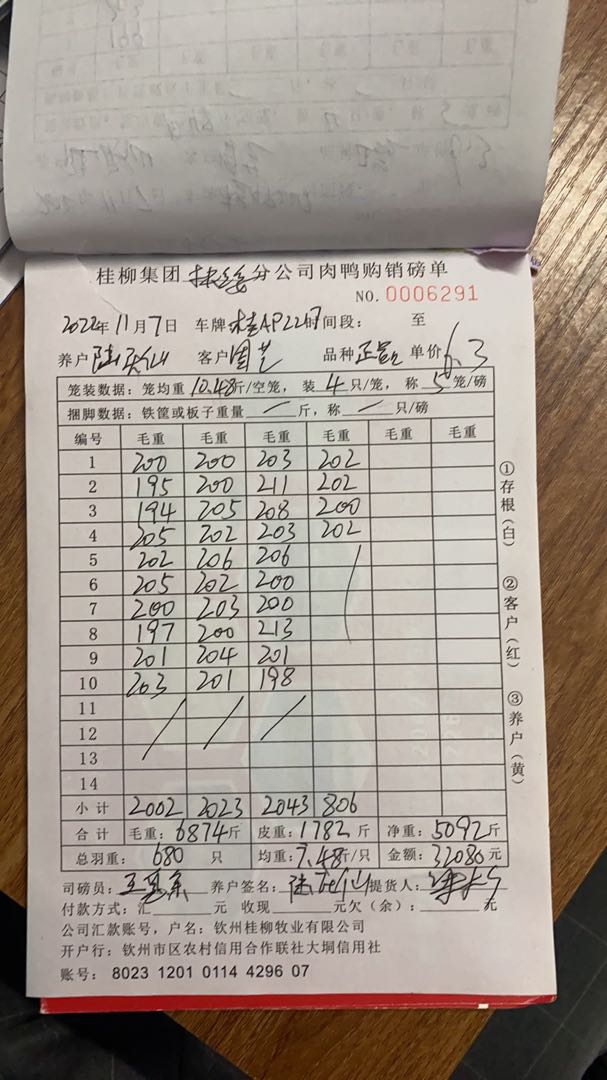 桂柳集团扶绥分公司肉鸭购销磅单
NO. 0006291
2022年11月7日 车牌桂AP22 时间段: 至
养户 陆 仙 客户 周艺 品种 正品 单价 6.3
笼装数据: 笼均重 10.48斤/空笼, 装 4 只/笼, 称 5 笼/磅
捆脚数据: 铁筐或板子重量 / 斤, 称 / 只/磅
编号 毛重 毛重 毛重 毛重 毛重 毛重
1 200 200 203 202
2 195 200 211 202
3 194 205 208 200
4 205 202 203 202
5 202 206 206
6 205 202 200
7 200 203 200
8 197 200 213
9 201 204 201
10 203 201 198
11
12
13
14
小计 2002 2023 2043 806
合计 毛重: 6874斤 皮重: 1782斤 净重: 5092斤
总羽重: 680 只 均重: 7.48斤/只 金额: 32080元
司磅员: 养户签名: 陆 仙 提货人:
付款方式: 汇 元 收现 元欠(余): 元
公司汇款账号, 户名: 钦州桂柳牧业有限公司
开户行: 钦州市区农村信用合作联社大垌信用社
账号: 8023 1201 0114 4296 07
①存根(白)
②客户(红)
③养户(黄)